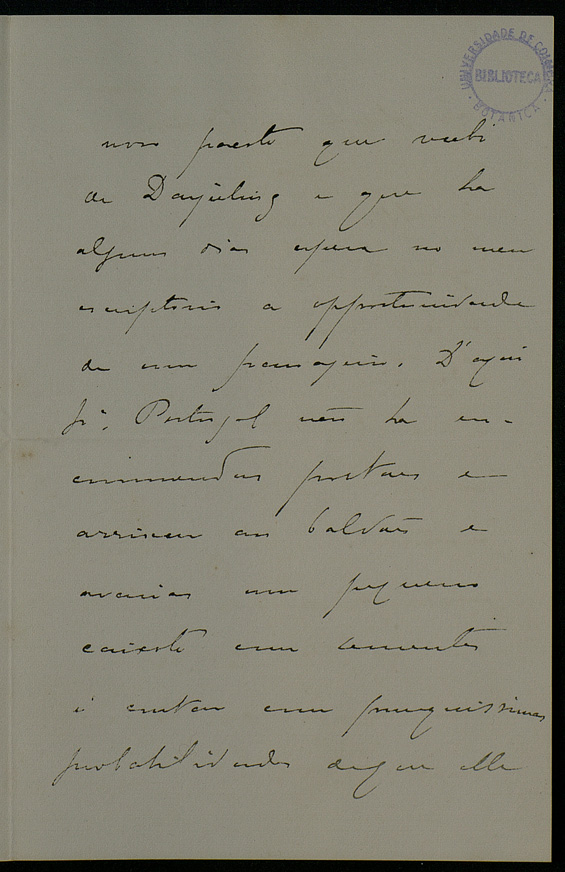 UNIVERSIDADE DE COIMBRA
BIBLIOTECA
BOTANICA
novo pacote que recebi
de Darjeeling e que ha
alguns dias espera no meu
escriptorio a opportunidade
de um passageiro. D'aqui
pª. Portugal não ha en-
commendas postaes e
arriscar aos baldões e
avarias um pequeno
caixote com sementes
é contar com pouquissimas
probabilidades de que elle